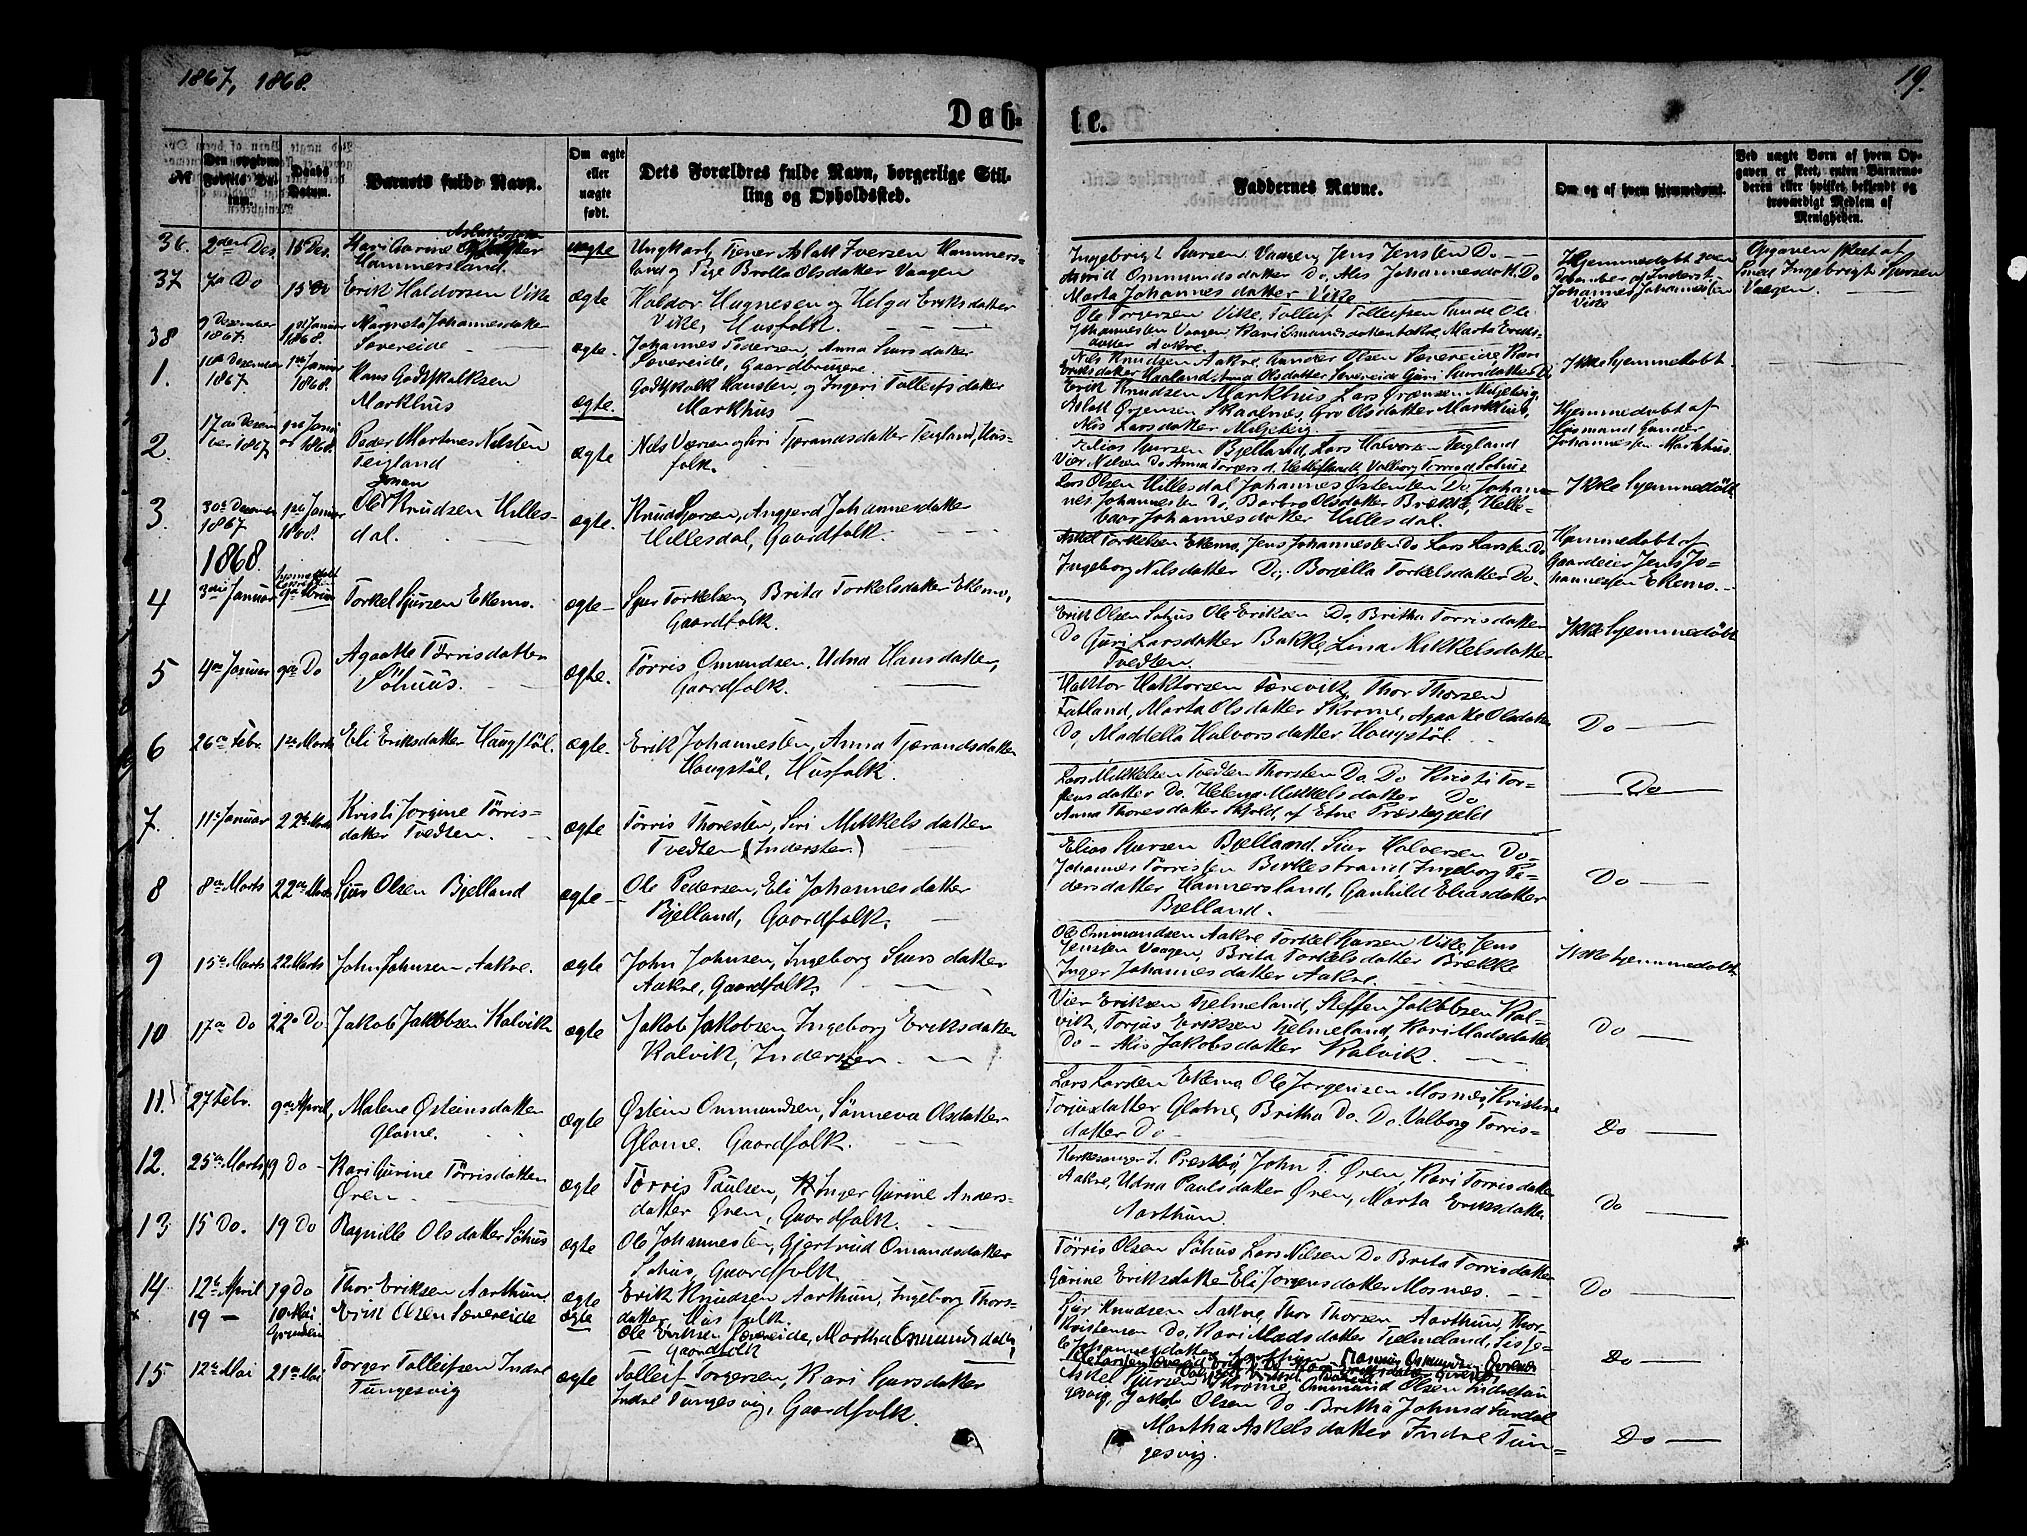 1867, 1868.
19.
Døb-
te.
№
Den opgivne Fødsels Datum.
Daabs Datum.
Barnets fulde Navn.
Om ægte eller uægte født.
Dets Forældres fulde Navn, borgerlige Stilling og Opholdssted.
Faddernes Navne.
Om og af hvem hjemmedøbt.
Ved uægte Børn af hvem Opgaven er skeet, enten Barnemoderen eller hvilket bekjendt og troværdigt Medlem af Menigheden.
36. 2den Des. 15 Des. Kari Gurine
Hammersland.
uægte
Ungkarl, Tjener Aslak Iversen Hammers-
land og Pige Brolla Olsdatter Vaagen
Ingebrigt Sjursen Vaagen, Jens Jensten Do
Ommundsdatter Do, Alis Johannesdatt. Do
Marta Johannesdatter Vike
Hjemmedøbt
Desember af Inderst
Johannes Johannesten
Vike
Opgaven skeet af
Smed Ingebrigt Sjursen
Vaagen.
37 7de Do 15 Do Erik Haldorsen Vike ægte
Haldor Hagnesen og Helga Eriksdatter
Vike, Husfolk.
Ole Torgersen Vike, Tollef Tollefsen Ole
Johannesten Vaagen, Kari Osmundsdatter Aakre, Marta Eriks-
datter Aakre.
38 9 Dezember 1867. 1ste Januar 1868. Margreta Johannesdatter
Sævereide
ægte.
Johannes Pedersen, Anna Sjursdatter
Sævereide, Gaardbrugere.
Nils Knudsen Aakre, Gunder Olsen Sævereide, Kari
Eriksdatter Haaland, Anna Olsdatter Sævereide, Guri Sjursdatter Do
Ikke hjemmedøbt.
1. Dezember 1867. 1ste Januar 1868. Hans Godtskalksen
Markhus
ægte.
Godtskalk Hansten, og Ingeri Tollefsdatter
Markhus
Erik Knudsen Markhus, Lars Miljeteig
Aslak Ørjensen Skaalnes, Gro Olsdatter Markhus,
Alis Larsdatter Miljeteig.
Hjemmedøbt af
Husmand Gunder
Johannessen Markhus.
2. 17de Desember 1867 1ste Januar 1868. Peder Martnes Nilsten
Teigland
ægte
Nils Værsen og Siri Tjerandsdatter Teigland, Hus-
folk.
Elias Sjursen Bjelland, Lars Halvorsen Teigland
Vier Nilsen Do Anna Torgersd. Valborg Torrisd. Søhus
Ikke hjemmedøbt
3. 30te Desember 1867 1ste Januar 1868. Ole Johan Knudsen Hilles-
dal.
ægte.
Knud Sjursen, Angjerd Johannesdatter
Hillesdal, Gaardfolk.
Lars Olsen Hillesdal, Johannes Østensten Do, Johan-
nes Johannesten Do, Barbro Olsdatter Brekke, Helle-
vaar Johannesdatter Hillesdal.
1868.
4 3die Januar Torkel Sjursen Ekemo. ægte
Sjur Torkelsen, Brita Torkelsdatter Ekemo,
Gaardfolk.
Askel Torkelsen Ekemo, Jens Johannesten Do, Lars Larsten Do
Ingeborg Nilsdatter Do, Borzella Torkelsdatter Do.
Hjemmedøbt af
Gaardeier Jens Jo-
hannessen Ekemo.
5 4de Januar 9de Do Agaathe Tørrisdatter
Söhuus.
ægte.
Tørris Omundsen, Udna Hansdatter,
Gaardfolk.
Erik Olsen Søhus Ole Eriksen Do, Britha Torrisdatter
Do, Guri Larsdatter Bakke, Lina Mikkelsdatter
Tvedten.
Ikke hjemmedøbt
6 26de Febr. 1ste Marts Eli Eriksdatter Haugstöl. ægte.
Erik Johannesten, Anna Tjerandsdatter
Haugstöl, Husfolk.
Haktor Haktorsen Færevik, Thor Thorsen
Fatland, Marta Olsdatter Skrome, Agaathe Olsdatter
Do, Maddella Halvorsdatter Haugstöl.
Do
7. 11te Januar 22de Marts Kristi Jorgine Törris-
datter Tvedten.
ægte
Törris Thoresten, Siri Mikkelsdatter
Tvedten (Inderster)
Lars Mikkelsen Tvedten, Thorsten Do, Do Kristi Tor-
stensdatter Do, Helena Mikkelsdatter Do
Anna Thoresdatter Skjold, af Etne Præstegjeld
Do
8 8de Marts 22de Marts Sjur Olsen Bjelland ægte
Ole Pedersen, Eli Johannesdatter
Bjelland, Gaardfolk.
Elias Sjursen Bjelland, Sjur Halvorsen Do
Johannes Torristen Birkestrand, Ingeborg Pe-
dersdatter Hammersland, Gunhild Eliasdatter
Bjelland.
Do
9 15de Marts 22 Marts John Johnsen Aakre. ægte
John Johnsen, Ingeborg Sjursdatter
Aakre, Gaardfolk.
Ole Ommundsen Aakre, Torkel Sjursen Vike, Jens
Jensten Vaagen, Brita Torkelsdatter Brække
Inger Johannesdatter Aakre.
Ikke hjemmedøbt
10 17de Do 22de Do Jakob Jakobsen Kalvik ægte
Jakob Jakobsen, Ingeborg Eriksdatter
Kalvik, Inderster
Vier Eriksen Tjelmeland, Steffen Jakobsen Kal-
vik, Torjus Eriksen Tjelmeland, Kari Madsdatter
Do, Alis Jakobsdatter Kalvik.
Do
11. 27 Febr. 9de April, Malene Østeinsdatter
Glome.
ægte
Østein Ommundsen, Sønneva Olsdatter
Glome. Gaardfolk.
Lars Larsten Ekemo, Ole Jorgensen Mosnes, Kristine
Torjusdatter Glome, Britha Do. Do. Valborg Torris-
datter Do
Do
12. 25de Marts 9 Do Kari Gurine Törrisdatter
Ören
ægte
Tørris Paulsen, Inger Gurine Anders-
datter Øren, Gaardfolk.
Kirkesanger S. Præstbø, John T. Øren, Kari Torrisdatter
Aakre, Udna Paulsdatter Øren, Marta Eriksdatter
Aarthun.
Do
13 15 Do. 19 Do Ragnille Olsdatter Söhus ægte
Ole Johannesten, Gjertrud Omundsdatter
Sohus, Gaardfolk
Tørris Olsen Söhus, Lars Nilsen Do Brita Torrisdatter
Gurine Eriksdatter Eli Jorgensdatter Mosnes.
Do
14 12te April 19 Do Thor Eriksen Aarthun ægte
Erik Knudsen Aarthun, Ingeborg Thors-
datter, Husfolk
Sjur Knudsen Aakre, Thor Thorsen Aarthun, Thor
Kristensen Do, Kari Madsdatter Tjelmeland,
Johannesdatter Aarthun
Do
19 10 Mai Erik Olsen Sævereide ægte
Ole Eriksen Sævereide, Martha Osmundsdatter,
Gaardfolk
15. 12te Mai 21de Mai Torger Tolleifsen Indre
Tungesvig
ægte
Tolleif Torgersen, Kari Sjursdatter
Indre Tungesvig, Gaardfolk.
Askel Sjursen Skrome, Ommund Olsen Indretun-
gesvig, Jakob Olsen Do. Britha Johnsd.
Martha Askelsdatter Indre Tun-
gesvig.
Do